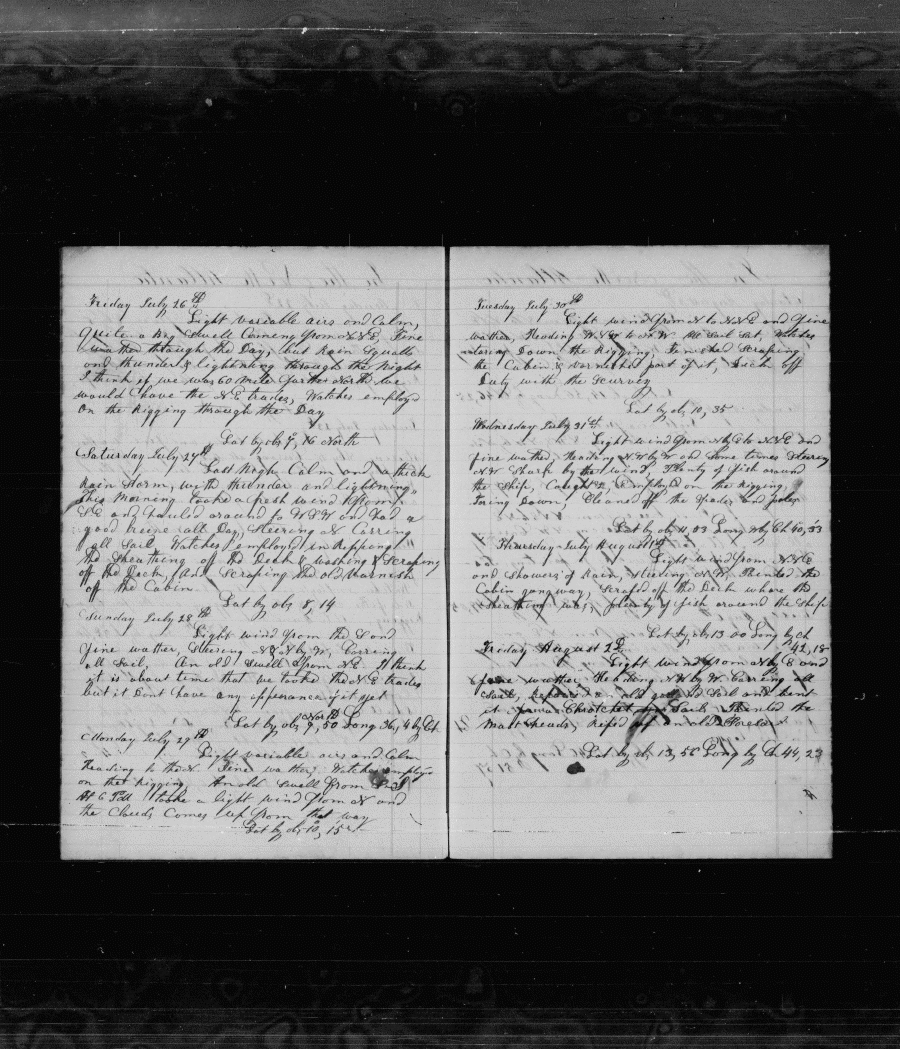 Friday July 26th
Light variable airs and Calm,
Quite a big Swell Coming from N.E. Fine
weather through the Day, but Rain Squalls
and thunder & lightning through the Night
I think if we was 60 mile farther North we
would have the N.E trades, Watches employ
on the Rigging through the Day
Lat by obs 7, 16 North
Saturday July 27th
Last Night Calm and a thick
Rain Storm, with thunder and lightning
This Morning tooke a fresh wind from
S.E and hauld around to W.S.W and had a
good brieze all Day, Steering N Carring
all Sail, Watches employed in Ripping
the Sheathing off the Deck & washing & Scraping
off the Deck, Scraping the old Varnish
off the Cabin.
Lat by obs 8, 14
Sunday July 28th
Light wind from the and
fine wather, Steering N & N by W, Carring
all Sail, An old Swell from N.E. I think
it is about time that we tooke the N.E trades
but it Dont have any apperance of it yet
Lat by obs North 9, 50 Long 36, 4 by Ch
Monday July 29th
Light variable airs and Calm
Heading to the N. Fine wather, Watches employ
on the Rigging An old Swell from
At 6 PM tooke a light wind from N and
the Clouds Comes up from that way
Lat by obs 10, 15
Tuesday July 30th
Light wind from N to N.N.E and fine
wather, Heading W.N.W to N.W All Sail Set, Watches
taring Down the Rigging, Finished Scraping
the Cabin & varnished part of it, Dick off
Duty with the Scurvey
Lat by obs 10, 35
Wednesday July 31st
Light wind from N by E to N.N.E and
fine wather, Heading N.W by W and Some times Steering
N.W Sharp by the wind Plenty of fish around
the Ship, Caught employed on the Rigging,
Taring Down, Cleaned off the Spades and poles
Lat by obs 11, 03 Long by Ch 40, 53
Thursday July August 1st
Light wind from N.N.E
and Showers of Rain, Steering N.W, the
Cabin gangway, Scraped off the Deck where the
Sheathing was, plenty of fish around the Ship
Lat by obs 13 00 Long by Ch
42, 18
Friday August 2d
Light wind from N by E and
fine wather Heading N.W by W Carring all
Sail, an old Sail and bent
it Sail, the
Mast heads, an old
Lat by obs 13, 56 Long by Ch 44, 23